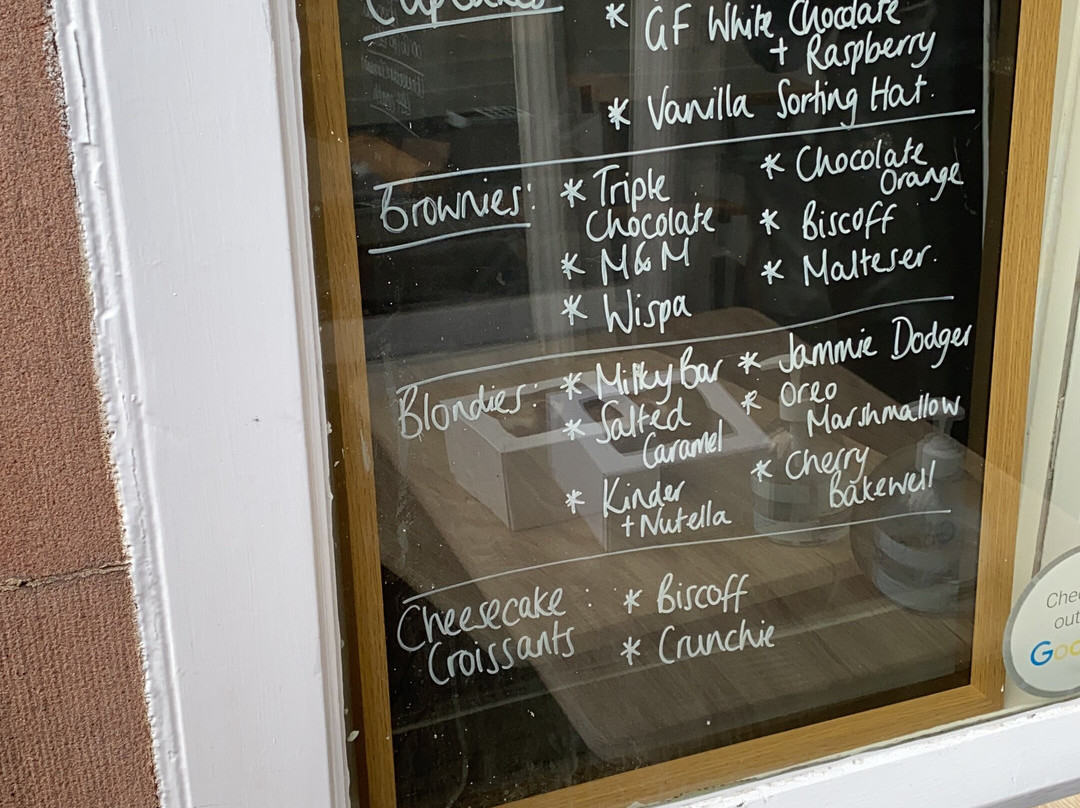 Cupcakes
* GF White Chocolate
+ Raspberry
* Vanilla Sorting Hat.
Brownies:
* Triple
Chocolate
* M&M
* Wispa
* Chocolate
Orange
* Biscoff
* Malteser.
Blondies:
* Milky Bar
* Salted
Caramel
* Kinder
+ Nutella
* Jammie Dodger
* Oreo
Marshmallow
* Cherry
Bakewell
Cheesecake :
Croissants
* Biscoff
* Crunchie